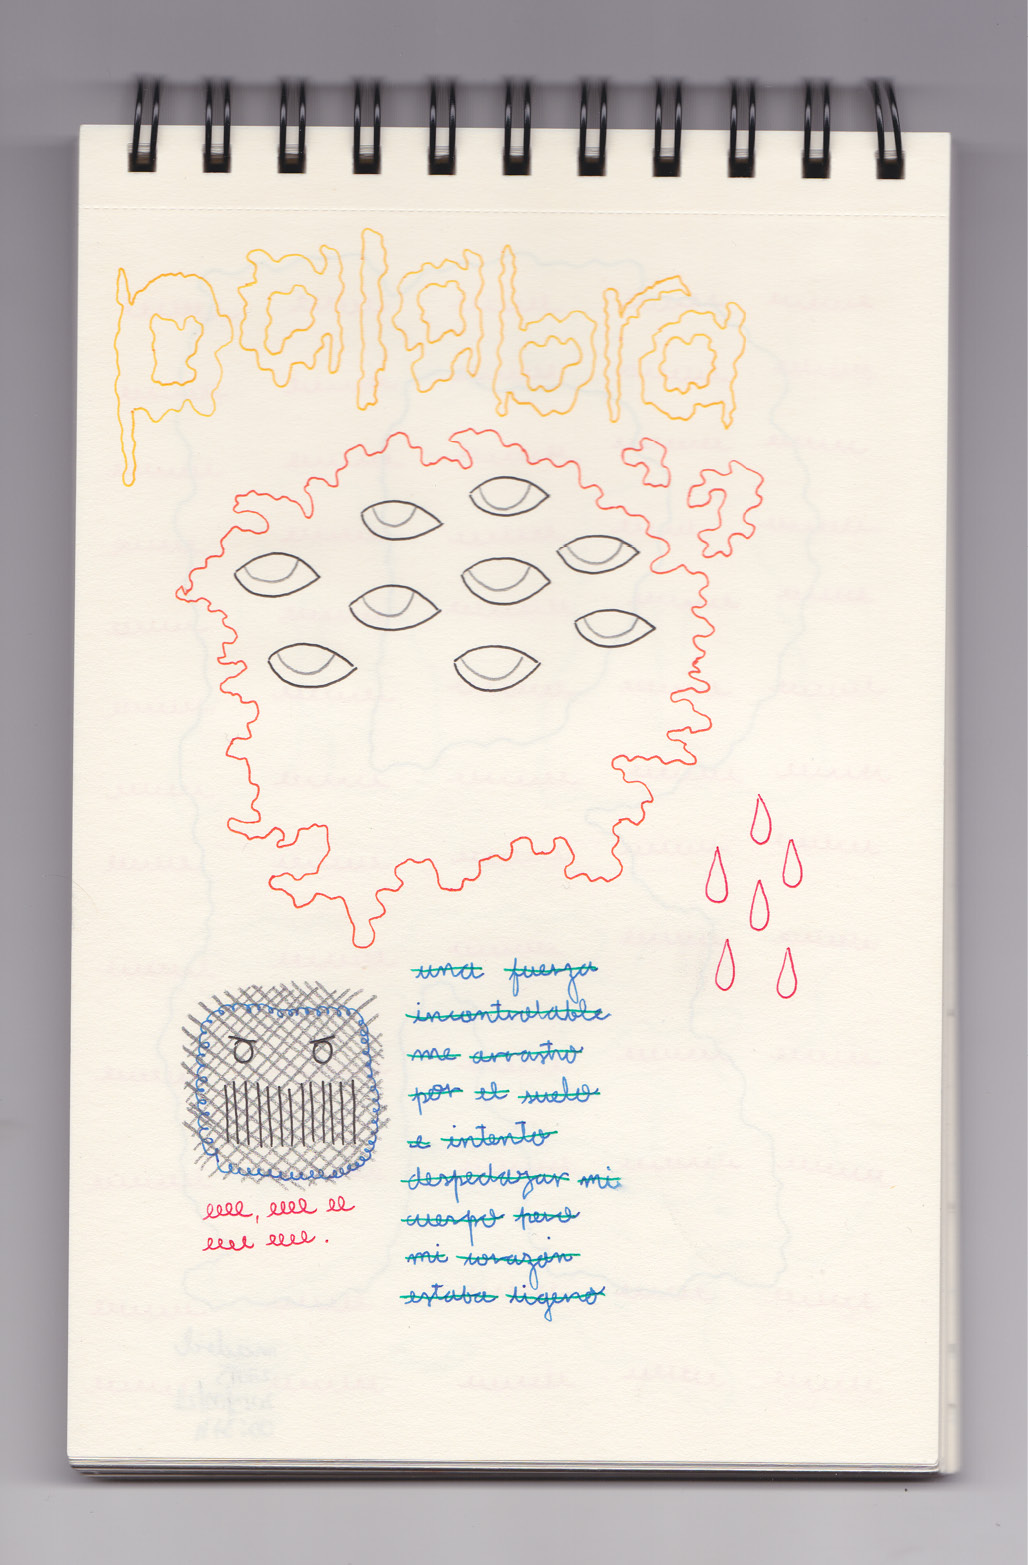 palabra
una fuerza
incontrolable
me arrastro
por el suelo
e intento
despedazar mi
cuerpo pero
mi corazón
estaba ligero